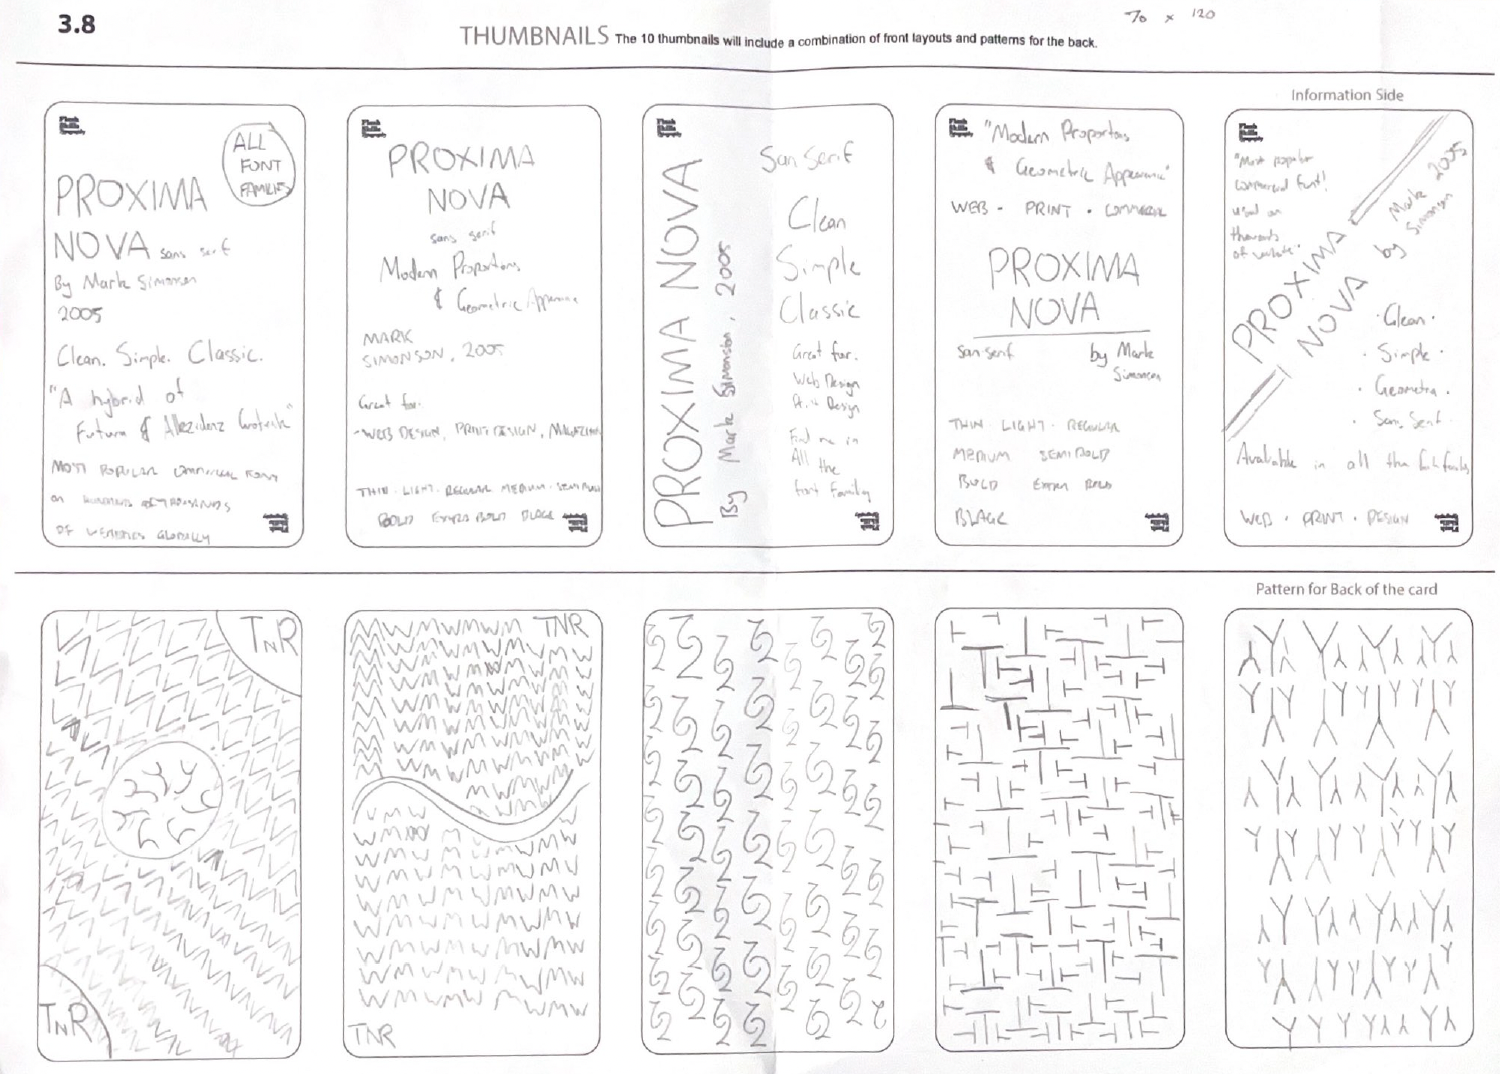 3.8
70 x 120
THUMBNAILS The 10 thumbnails will include a combination of front layouts and patterns for the back.
Information Side
ALL
FONT
FAMILIES
PROXIMA
NOVA sans serif
By Mark Simonson
2005
Clean. Simple. Classic.
"A hybrid of
Futura & Akzidenz Grotesk"
MOST POPULAR COMMERCIAL FONT
ON HUNDREDS OF THOUSANDS
OF WEBSITES GLOBALLY
PROXIMA
NOVA
sans serif
Modern Proportions
& Geometric Appearance
MARK
SIMONSON, 2005
Great for:
-WEB DESIGN, PRINT DESIGN, MAGAZINE
THIN · LIGHT · REGULAR MEDIUM · SEMI BOLD
BOLD EXTRA BOLD BLACK
PROXIMA NOVA
By Mark Simonson, 2005
San Serif
Clean
Simple
Classic
Great for:
Web Design
Print Design
Find me in
All the
font family
"Modern Proportions
& Geometric Appearance"
WEB - PRINT · COMMERCIAL
PROXIMA
NOVA
San serif
by Mark
Simonson
THIN · LIGHT · REGULAR
MEDIUM SEMI BOLD
BOLD Extra BOLD
BLACK
"Most popular
commercial font!
used on
thousands
of website."
PROXIMA
NOVA
by Mark Simonson 2005
· Clean ·
· Simple ·
· Geometra ·
· San, Serif ·
Available in all the font families
WEB · PRINT · DESIGN
Pattern for Back of the card
TNR
TNR
TNR
TNR